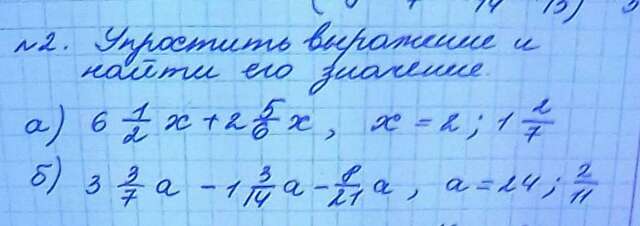 №2. Упростить выражение и
найти его значение.
а) 6 1/2 x + 2 5/6 x, x = 2; 1 2/7
б) 3 3/7 a - 1 3/14 a - 8/21 a, a = 24; 2/11